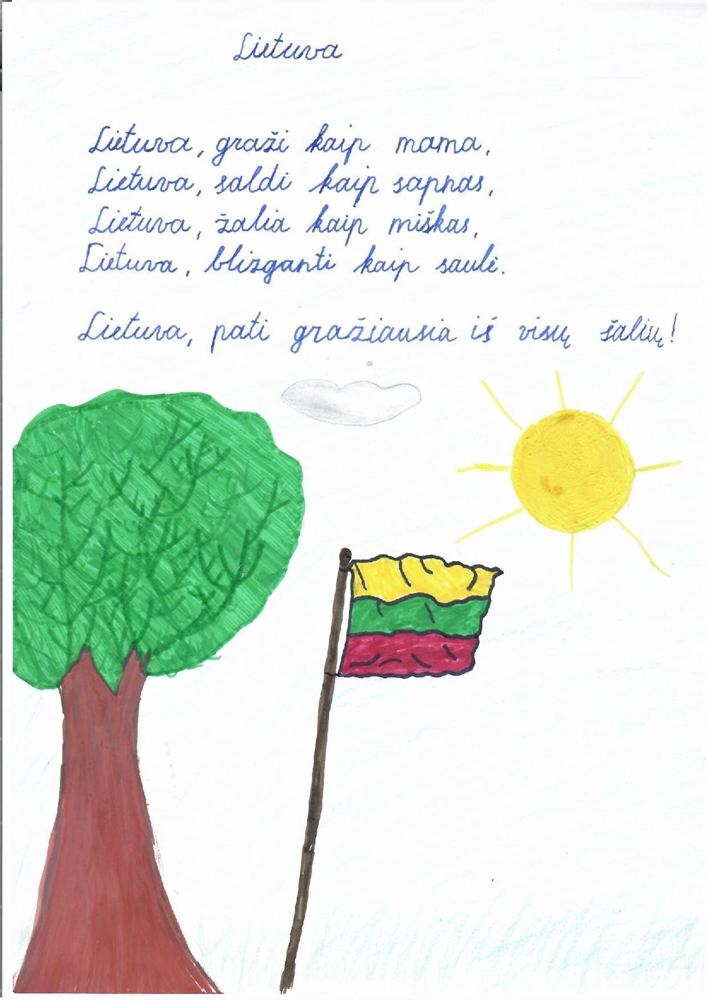 Lietuva
Lietuva, graži kaip mama,
Lietuva, saldi kaip sapnas,
Lietuva, žalia kaip miškas,
Lietuva, blizganti kaip saulė.
Lietuva, pati gražiausia iš visų šalių!